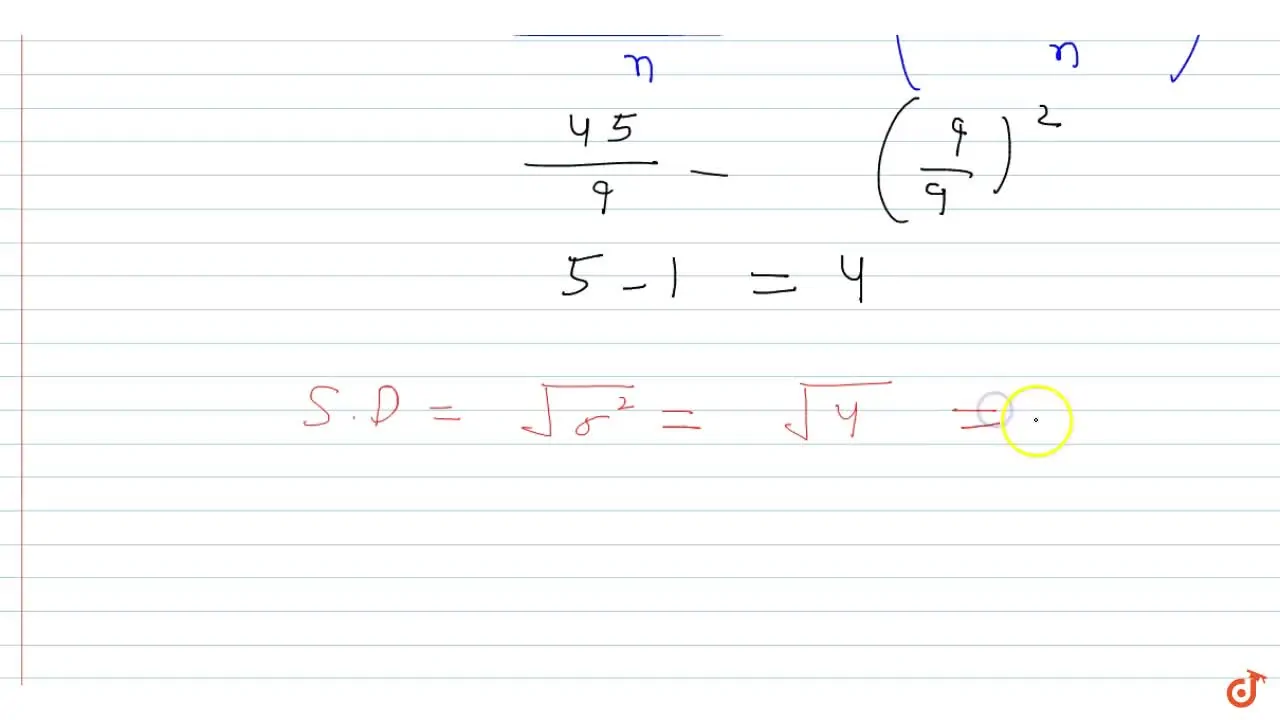 n ( n )
45/9 - (9/9)²
5 - 1 = 4
S.D = √σ² = √4 =